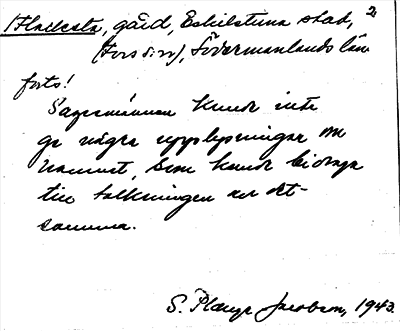 Hallesta, gård, Eskilstuna stad, 2
(Fors sn), Södermanlands län
forts!
Sagesmännen kunde inte
ge några upplysningar om
namnet, som kunde bidraga
till tolkningen av det-
samma.
S. Jacobson, 1943.